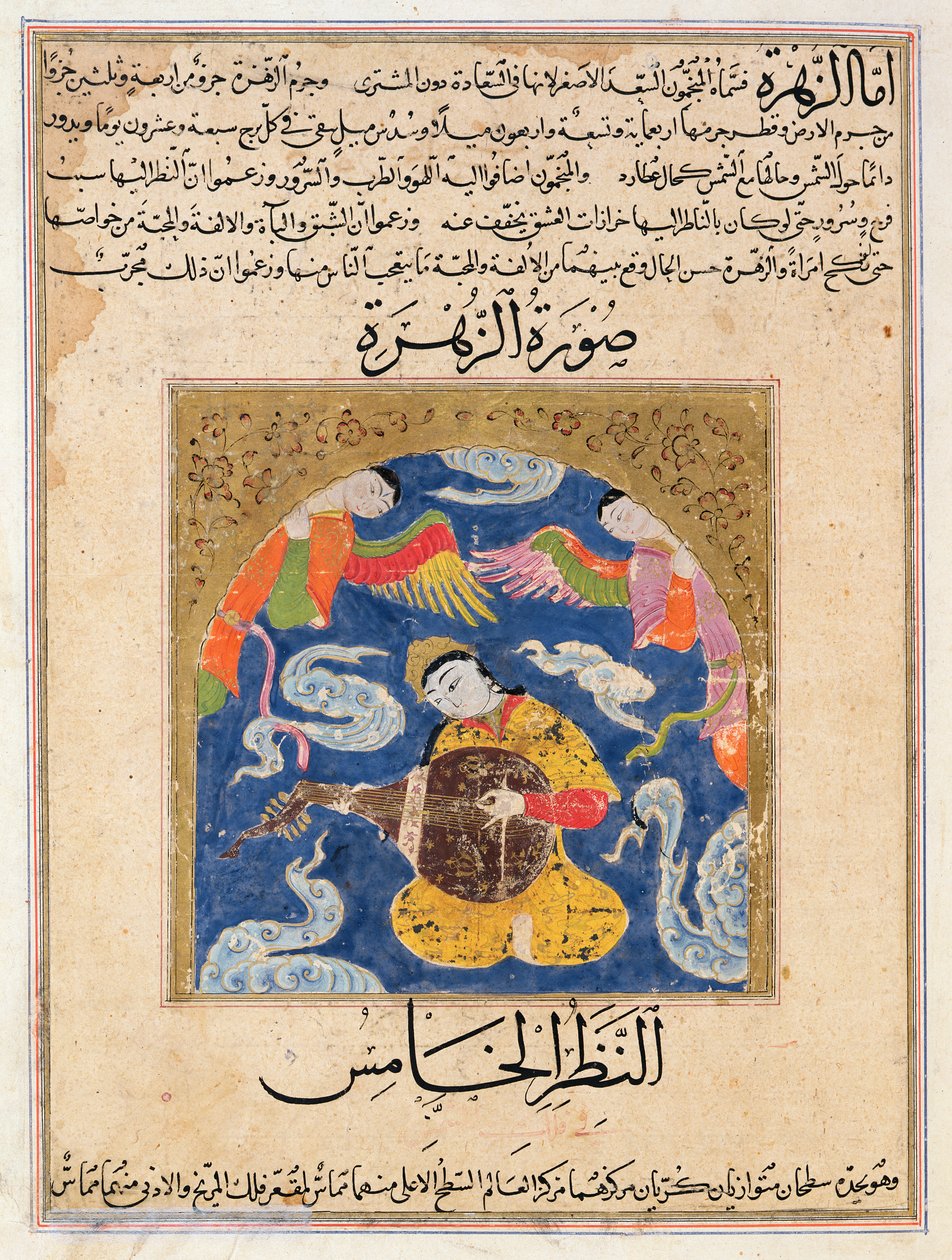 امّا الزُّهرة فسمّاه المنجّمون السّعد الاصغر لانها فى السّعادة دون المشترى وجرم الزّهرة جزؤ من اربعة وثلثين جزؤًا
من جرم الارض وقطر جرمها اربعماية وتسعة واربعون ميلًا وسُدس ميل تبقى فى كلّ برج سبعة وعشرون يومًا ويدور
دائمًا حول الشمس وحالها مع الشمس كحال عطارد والمنجّمون اضافوا اليه اللّهو والطرب والسّرُور وزعموا انّ النّظر اليها سبب
فرح وسُرُورٍ حتّى لو كان بالنّاظر اليها حرازات العشق يخفّف عنه وزعموا انّ الشّبق والباءة والالفة والمحبّة من خواصّها
حتى لو نكح امراةً والزُّهَرة حسن الحال وقع بينهما من الالفة والمحبّة ما يتعجّب النّاس منها وزعموا انّ ذلك مُجرّبٌ
صُورَةُ الزُّهَرَةِ
النَّظَرُ الخَامِسُ
وهُو بحدّه سطحان متوازيان كُرّيان مركزهُما مركز العالم السّطح الاعلى منهما مماسٌّ لمقعّر فلك المرّيخ والادنى منهُما مماسٌّ